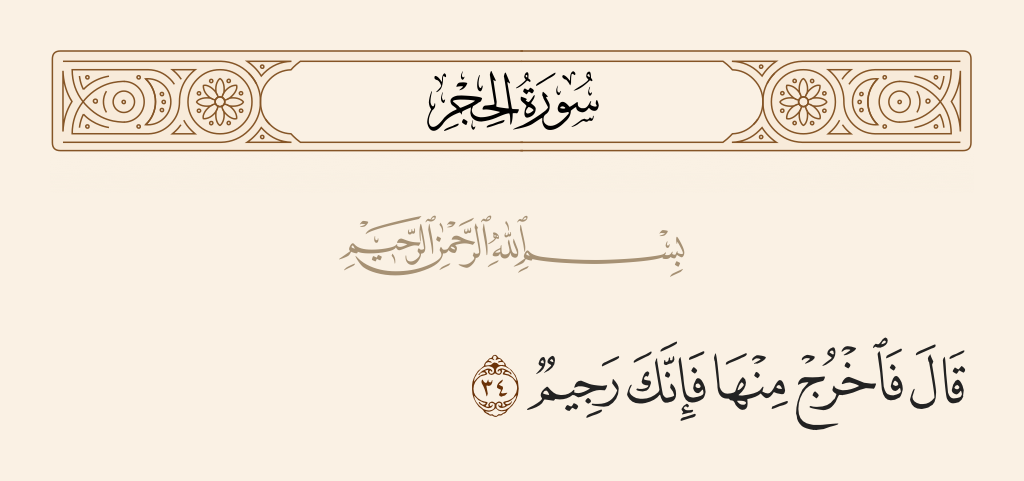 سُورَةُ الحِجْرِ
بِسْمِ ٱللَّهِ ٱلرَّحْمَٰنِ ٱلرَّحِيمِ
قَالَ فَٱخْرُجْ مِنْهَا فَإِنَّكَ رَجِيمٌ ٣٤